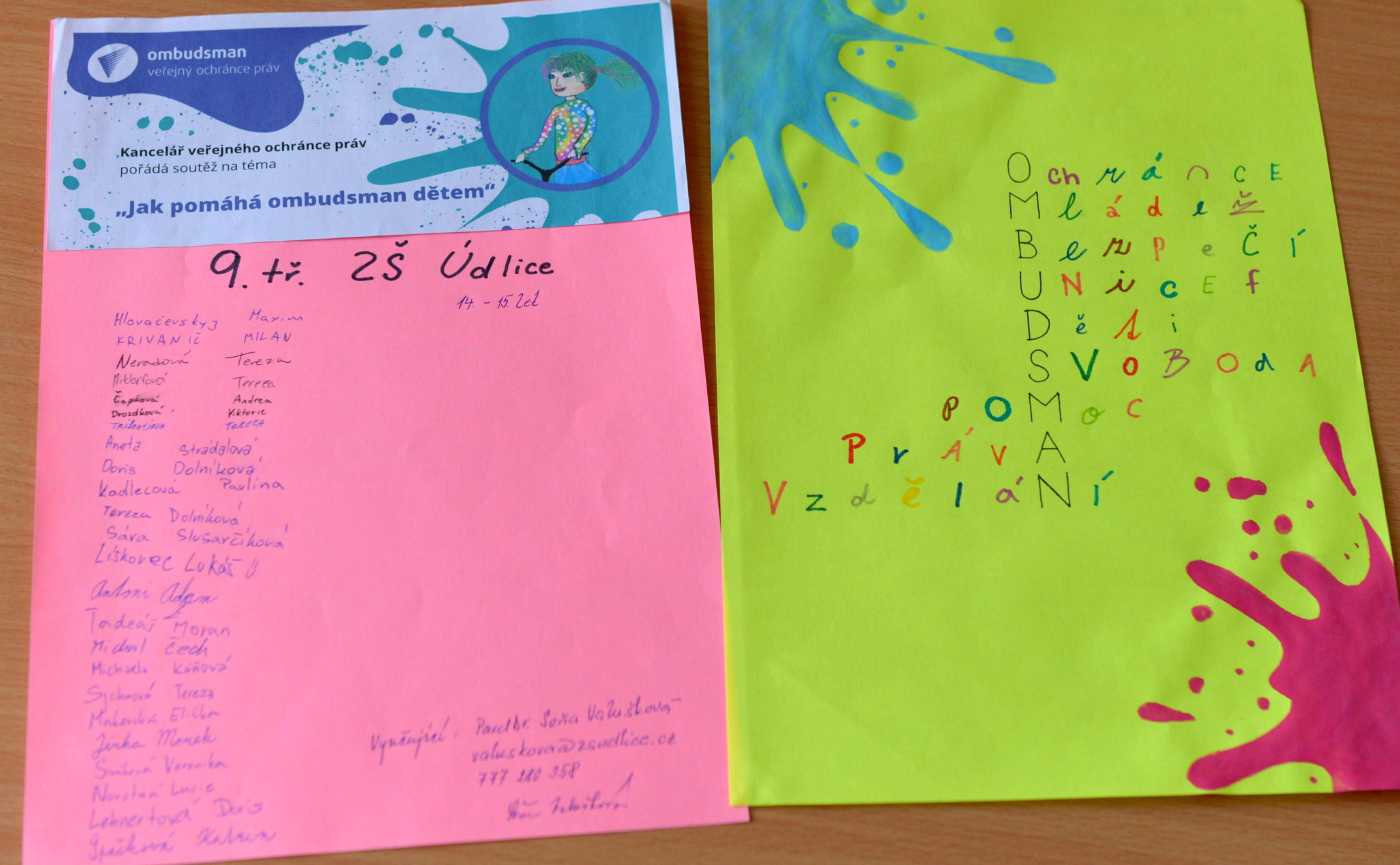 ombudsman
veřejný ochránce práv
Kancelář veřejného ochránce práv
pořádá soutěž na téma
„Jak pomáhá ombudsman dětem“
9. tř. ZŠ Údlice
14 - 15 let
Hlovačevskyj Maxim
KRIVANIČ MILAN
Tereza
Tereza
Čapková Andrea
Drozdková Viktorie
TEREZA
Aneta Stradalová
Doris Dolníková
Kadlecová Pavlína
Tereza Dolníková
Sára Slusarčíková
Liškovec Lukáš
Antoni Adam
Tadeáš Moran
Michal Čech
Michaela Káňová
Sychrová Tereza
Jirka Marek
Veronika
Lucie
Lehnertová Doris
Špačková
Vyučující: PaedDr. Soňa Valušková
valuskova@zsudlice.cz
777 210 358
OchránCE
MládeŽ
BezpeČí
UNicEf
Děti
SVOBOdA
POMoC
PrÁvA
VzděláNí